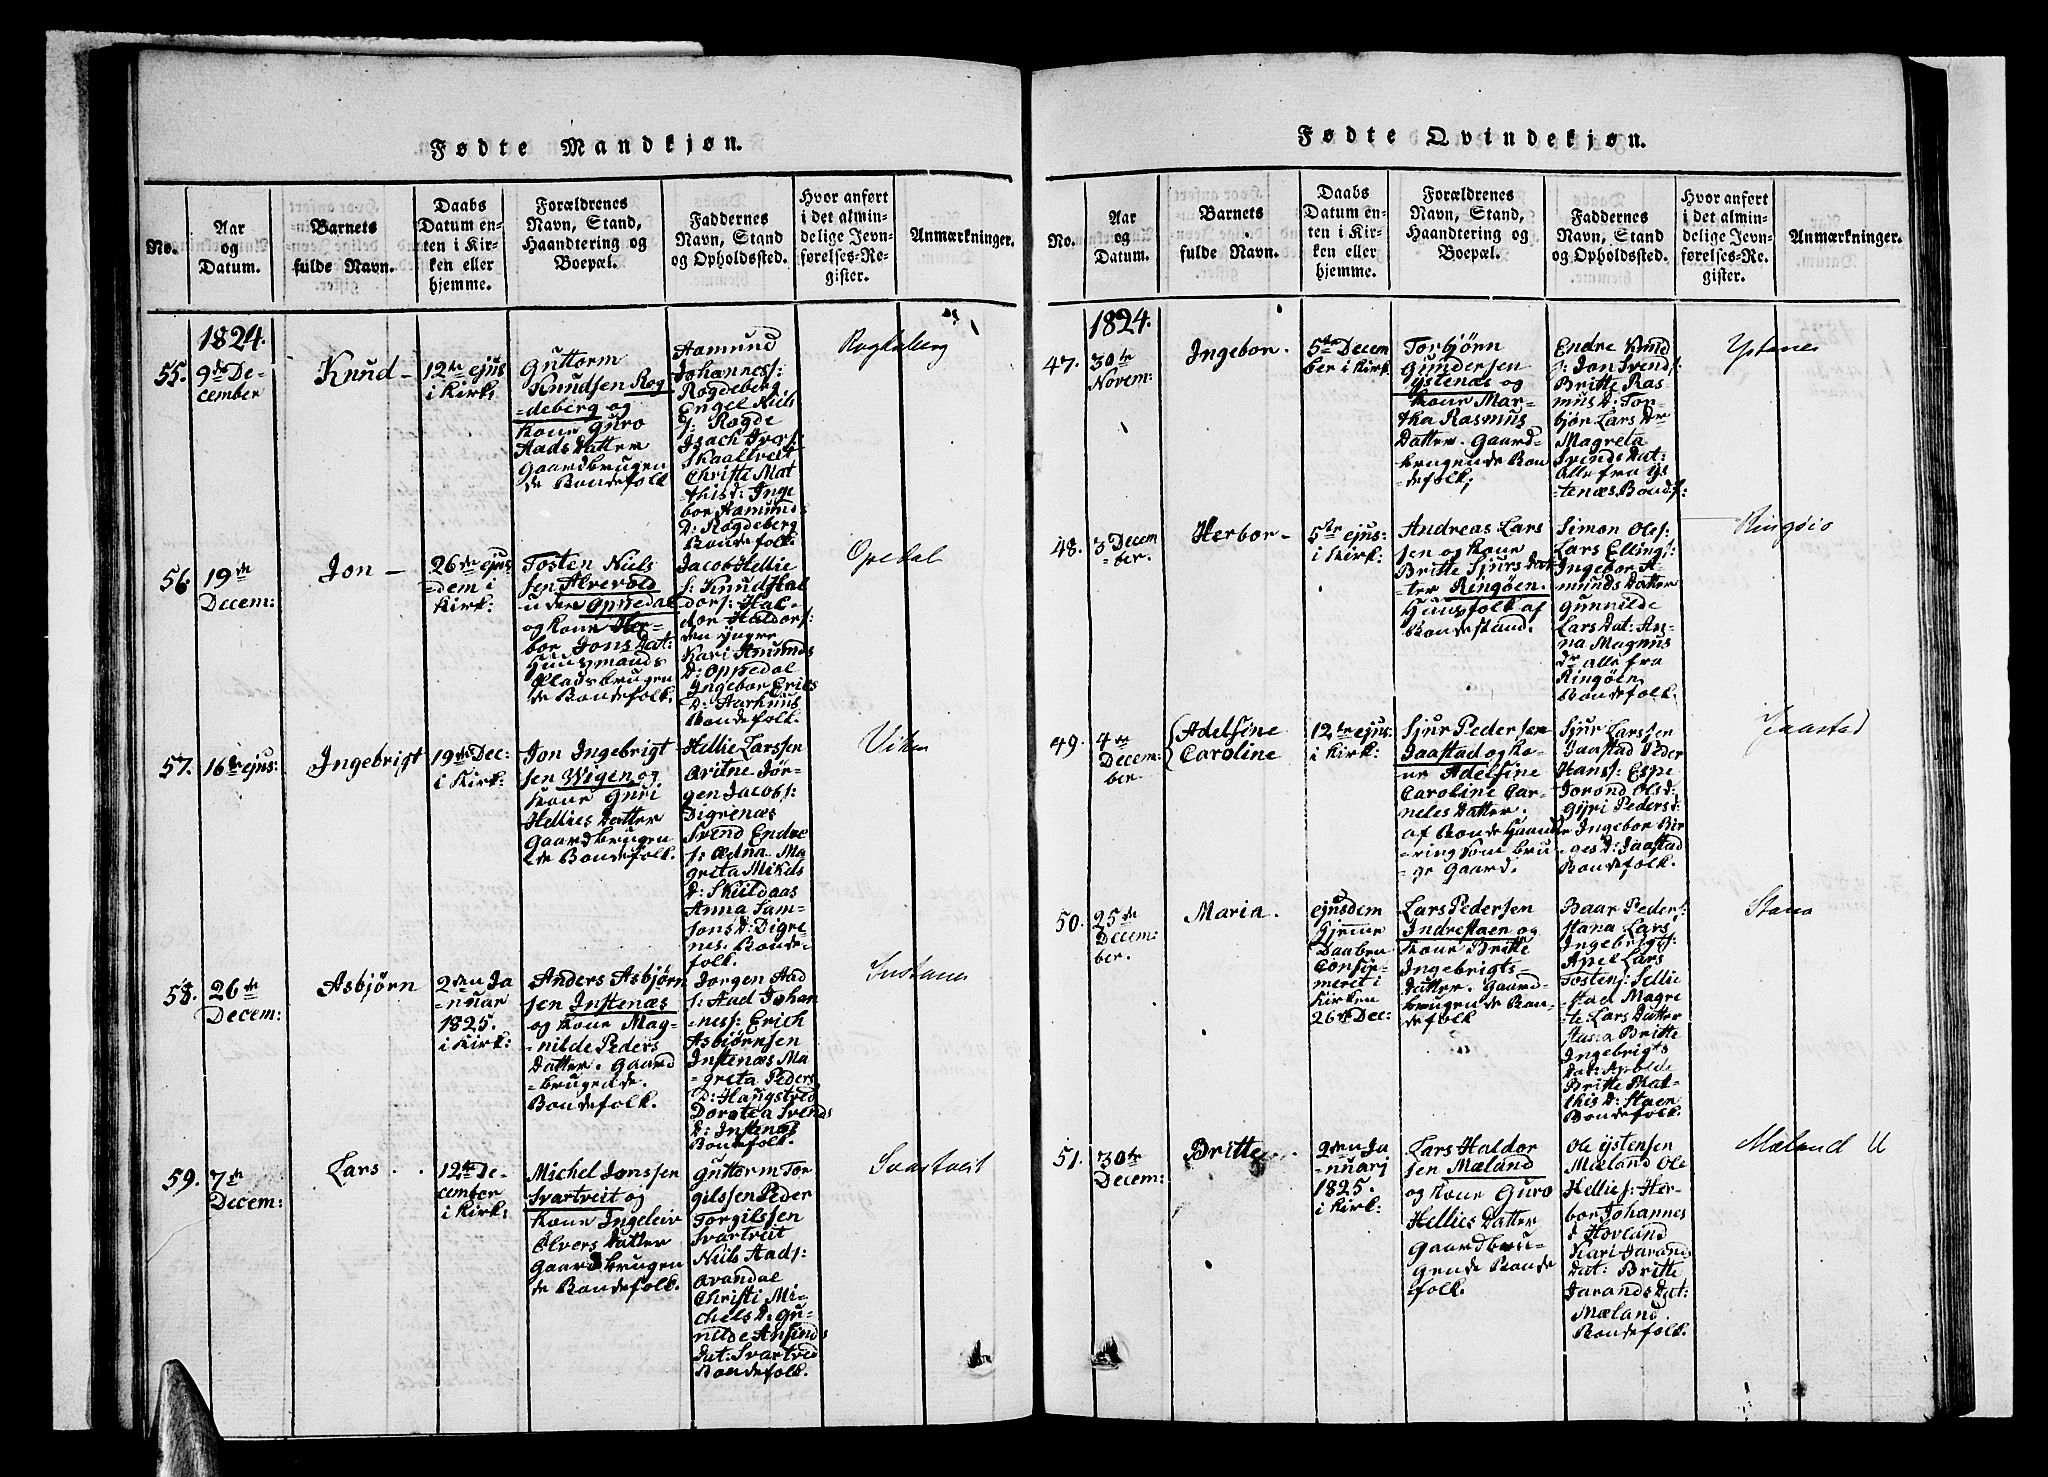 Fødte Mandkjøn.
No.
Aar
og
Datum.
Barnets
fulde Navn.
Daabs
Datum en-
ten i Kir-
ken eller
hjemme.
Forældrenes
Navn, Stand,
Haandtering og
Boepæl.
Faddernes
Navn, Stand
og Opholdssted.
Hvor anført
i det almin-
delige Jevn-
førelses-Re-
gister.
Anmærkninger.
1824.
55.
9de De-
cember
Knud -
12te ejus
i Kirk:
Guttorm
Knudsen Rog
=deberg og
Kone Guro
Aads Datter
Gaardbrugen
de Bondefolk
Aamund
Johanness:
Rogdeberg
Engel Niels
s: Rogde
Isach Ivers:
Skaaltveit
Christe Mat
=this d: Inge
bor Aamunds
D: Rogdeberg
Bondefolk.
56.
19de
Decem:
Jon -
26de ejus
=dem i
Kirk:
Tosten Niels
sen Alvevold
under Oppedal
og Kone Her-
bor Jons Dat:
Huusmands
Pladsbrugen
de Bondefolk.
Jacob Hellie
s: Knud Hal
dors: Hal-
dor Haldors:
den yngre
Kari Amunds
D: Oppedal
Ingebor Erics
D: Aarhuus
Bondefolk.
Opedal
57.
16de ejus:
Ingebrigt
19de Dec:
i Kirk:
Jon Ingebrigt
sen Wigen og
Kone Guri
Hellies Datter
Gaardbrugen
de Bondefolk.
Hellie Larssen
Qvitne Jør-
gen Jacobs:
Digrenæs
Svend Endre
s: Ædna Ma-
greta Mikels
D: Skuldaas
Anna Sam-
sons D: Digre-
nes. Bonde-
folk.
Viken
58.
26de
Decem:
Asbjørn
2den Ja
=nuar
1825.
i Kirk:
Anders Asbjørn
sen Instenæs
og Kone Mag-
=nilde Peders
Datter. Gaard
=brugende.
Bondefolk.
Jorgen Aad
s: Aad Johan
=ness: Erich
Asbjørnsen
Instenæs Ma-
=greta Peders
D: Haugstved
Dorotea Svends
D: Instenæs
Bondefolk.
59.
7de
Decem:
Lars
12te De-
cember
i Kirk:
Michel Jonssen
Svartveit og
Kone Ingeleiv
Elvers Datter
Gaardbrugen
de Bondefolk.
Guttorm Tor
gilssen Peder
Torgilssen
Svartveit
Niels Aads:
Qvandal
Christi Mi-
chels D: Gu-
=nilde Amunds
Dat: Svartved
Bondefolk.
Svartveit
Fødte Qvindekjøn.
No.
Aar
og
Datum.
Barnets
fulde Navn.
Daabs
Datum en-
ten i Kir-
ken eller
hjemme.
Forældrenes
Navn, Stand,
Haandtering og
Boepæl.
Faddernes
Navn, Stand
og Opholdssted.
Hvor anført
i det almin-
delige Jevn-
førelses-Re-
gister.
Anmærkninger.
1824.
47.
30te
Novem:
Ingebor.
5te Decem
ber i Kirk:
Torbjørn
Gundersen
Ystenæs og
Kone Mar-
tha Rasmus
Datter. Gaard-
brugende Bon
=defolk;
Endre Knud
s: Jon Svends:
Britte Ras
mus D: Tor-
bjør Lars Dr
Magreta
Svends Dat:
Alle fra Ys-
=tenæs Bondf:
Ystenes
48.
3 Decem
=ber.
Herbor -
5te ejus:
i Kirk:
Andreas Lars
sen og Kone
Britte Sjurs Dat
=ter Ringøen.
Huusfolk af
Bondestand.
Simon Oles:
Lars Ellings:
Ingebor A-
munds Datter
Gunnilde
Lars Dat: An-
na Magnus
Dr alle fra
Ringøen
Bondefolk.
Ringøio
49.
4de
Decem=
ber.
Adelsine
Caroline
12te ejus:
i Kirk:
Sjur Pedersen
Jaastad og Ko-
ne Adelsine
Caroline Car-
neles Datter.
af Bonde Haandte
=ring som bru-
ge Gaard.
Sjur Larssen
Jaastad Peder
Hanss: Espe
Jorond Ols d:
Gyri Peders d:
Ingebor Bir-
ges D: Jaastad
Bondefolk.
Jaastad
50.
25de
Decem:
ber.
Maria.
ejusdem
hjemme
Daaben
Consir-
meret i
Kirken
26de Dec:
Lars Pedersen
Indrestaen og
Kone Britte
Ingebrigts-
Datter. Gaard-
brugende Bon-
defolk
Baar Peders:
Stana Lars
Ingebrigts:
Apel Lars
Tostens: Sellie
=stad Magre
te: Lars Datter
Stana Britte
Ingebrigts
Dat: Apolde
Britte Mat-
this D: Staen
Bondefolk.
Stana
51.
30te
Decem:
Britte
2den Ja
=nuarj
1825.
i Kirk:
Lars Haldor
sen Mæland
og Kone Guro
Hellies Datter
Gaardbru-
gende Bonde
folk.
Ole Ystensen
Mæland Ole
Hellies: Her-
bor Johannes
d Hovland
Kari Jarands
Dat: Britte
Jarands Dat:
Mæland.
Bondefolk.
Mæland U